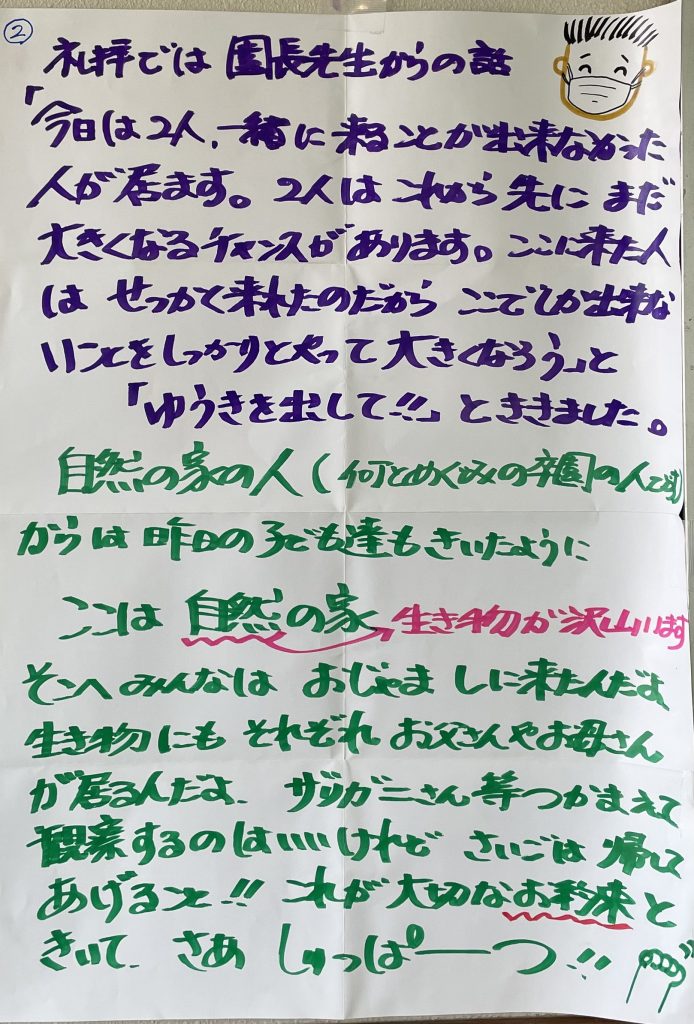 ②
礼拝では 園長先生からの話
「今日は2人、一緒に来ることが出来なかった
人が居ます。2人は これから 先に まだ
大きくなるチャンスがあります。ここに来た人
は せっかく来れたのだから ここでしか出来な
いことをしっかりとやって 大きくなろう」と
「ゆうきを出して!!」とききました。
自然の家の人(何とめぐみの卒園の人です)
からは 昨日の子ども達もきいたように
ここは 自然の家 生き物が沢山います
そこへ みんなは おじゃま しに来たんだよ
生き物にも それぞれ お父さんやお母さん
が居るんだよ、ザリガニさん等つかまえて
観察するのはいいけれど さいごは 帰して
あげること!! これが大切なお約束と
きいて、さあ しゅっぱーつ!!